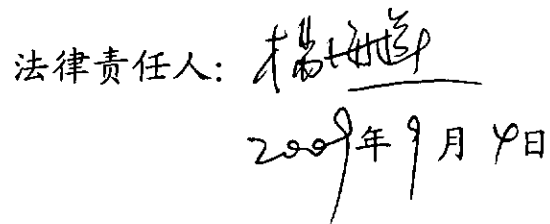 法律责任人：杨海
2009年9月4日